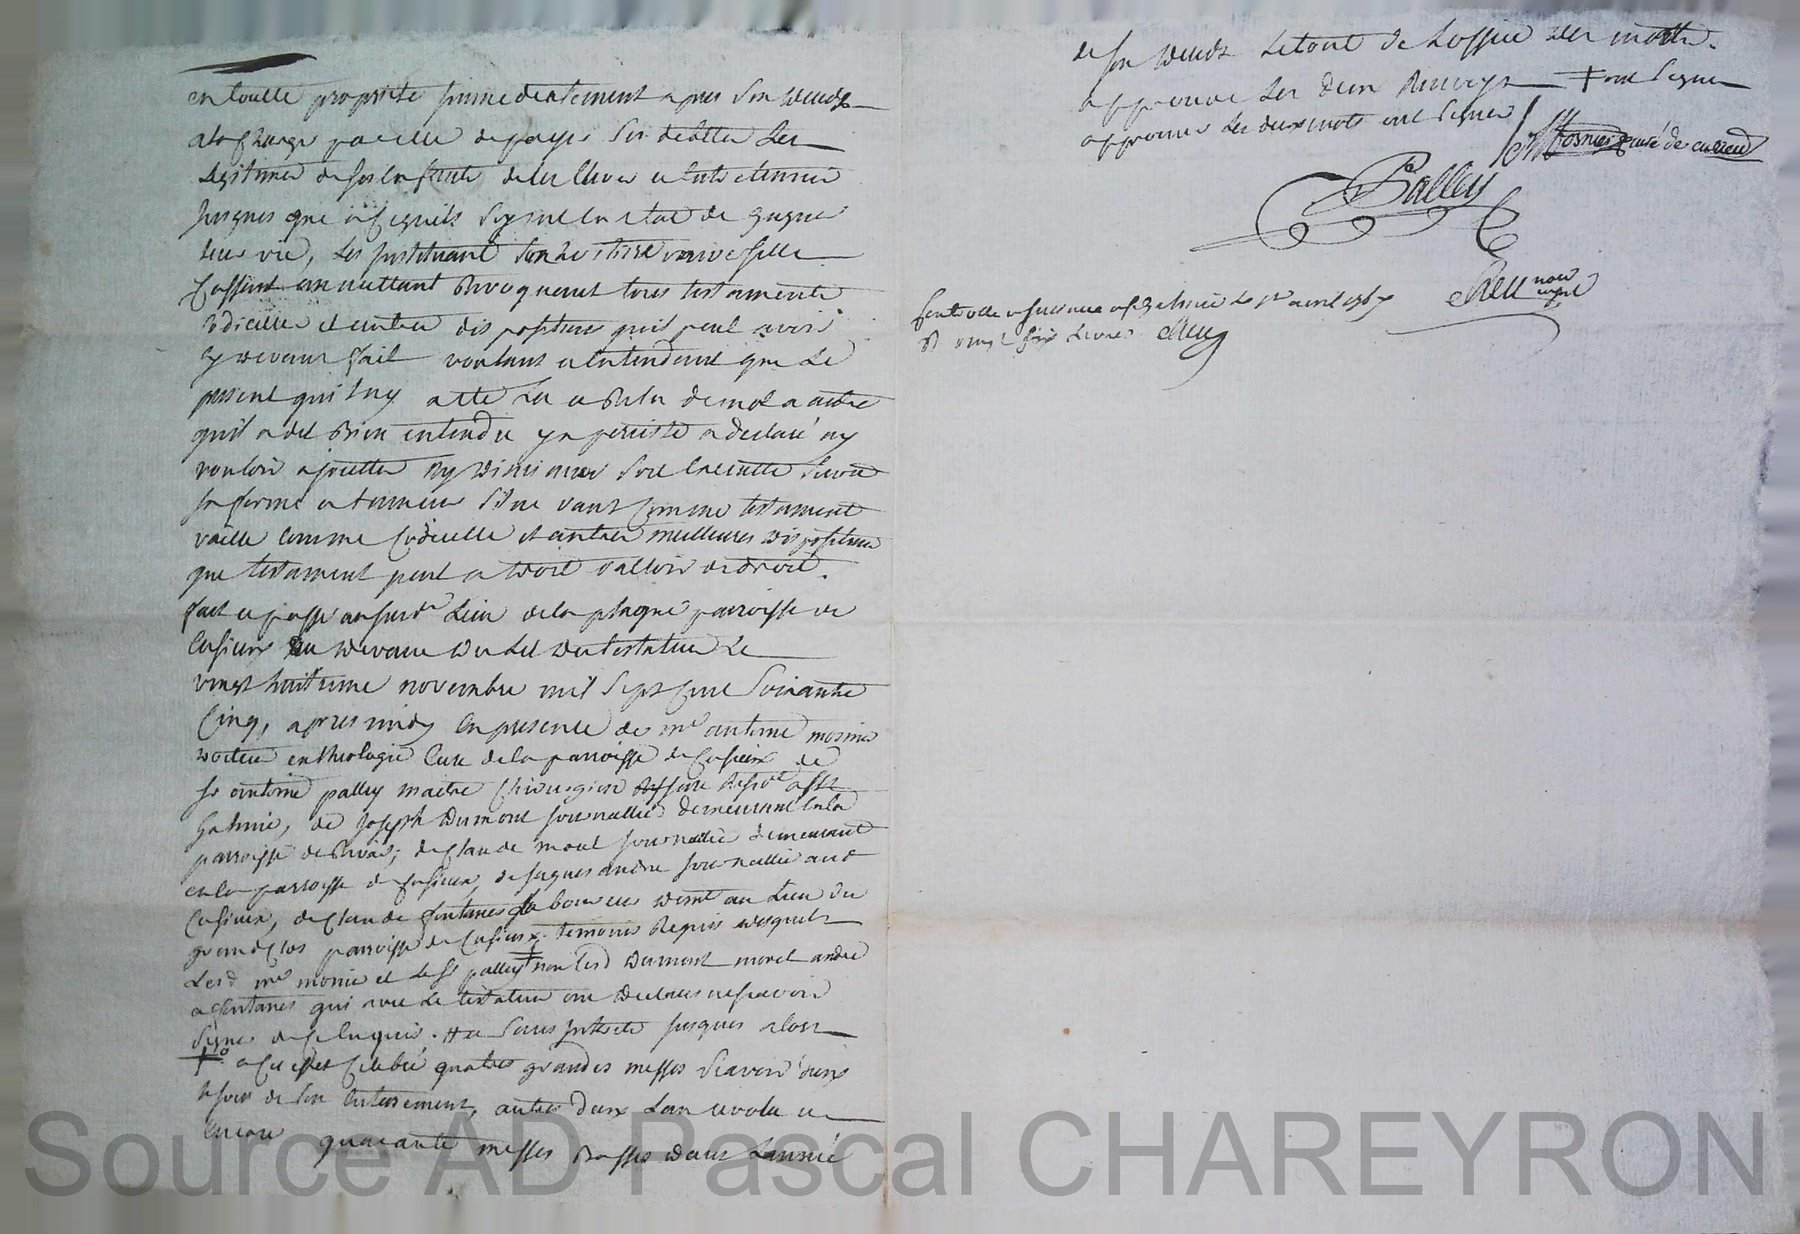 en toutte propriété immediatement apres son deceds
a la charge par elle de payer ses debttes les
legitimes de ses enfants de les elever et entretenir
jusques que a ce qu'ils soyent en etat de gagner
leur vie, les instituant son heritiere universelle
Cassant annullant revoquant tous testaments
Codicilles et autres dispositions qu'il peut avoir
cy devant fait voulant et entendant que le
present qui luy a eté lu et relu de mot a autre
qu'il a dit bien entendre y a persisté a declaré ny
vouloir ajoutter ny diminuer soit executté suivt
sa forme et teneur s'il ne vaut comme testament
vaille comme Codicille et autres meilleures dispositions
que testament peut et doit valloir de droit.
fait et passé au susdt lieu de la plagne parroisse de
Cusieux au devant du lit du testateur le
vingt huitieme novembre mil sept cent soixante
Cinq, apres midy en presence de mre antoine mosnier
docteur en theologie Curé de la parroisse de Cusieux de
sr antoine palley maitre Chirurgien
galmier, de Joseph Dumont journallier demeurant en la
parroisse de Rivas, de Claude morel journallier demeurant
en la parroisse de Cusieux, de jaques andré journallier audt
Cusieux, de Claude fontanes laboureur demt au lieu du
grand Clos parroisse de Cusieux temoins requis desquels
lesd mre monier et le sr palley non lesd Dumont morel andré
et fontanes qui avec le testateur ont declarés ne scavoir
signer de ce enquis. jusques alors
a cet effet celebré quatres grandes messes scavoir deux
le jour de son enterrement, autres deux l'an revolu et
encore quarante messes basses dans l'année
de son deceds le tout de l'office des morts.
approuvé les deux renvoys ont signer
approuvés les deux mots ont signer
Mosnier curé de cusieu
Palley
non
signé
Controllé a st galmier le 1er avril 1767
R vingt six livres
Source AD Pascal CHAREYRON